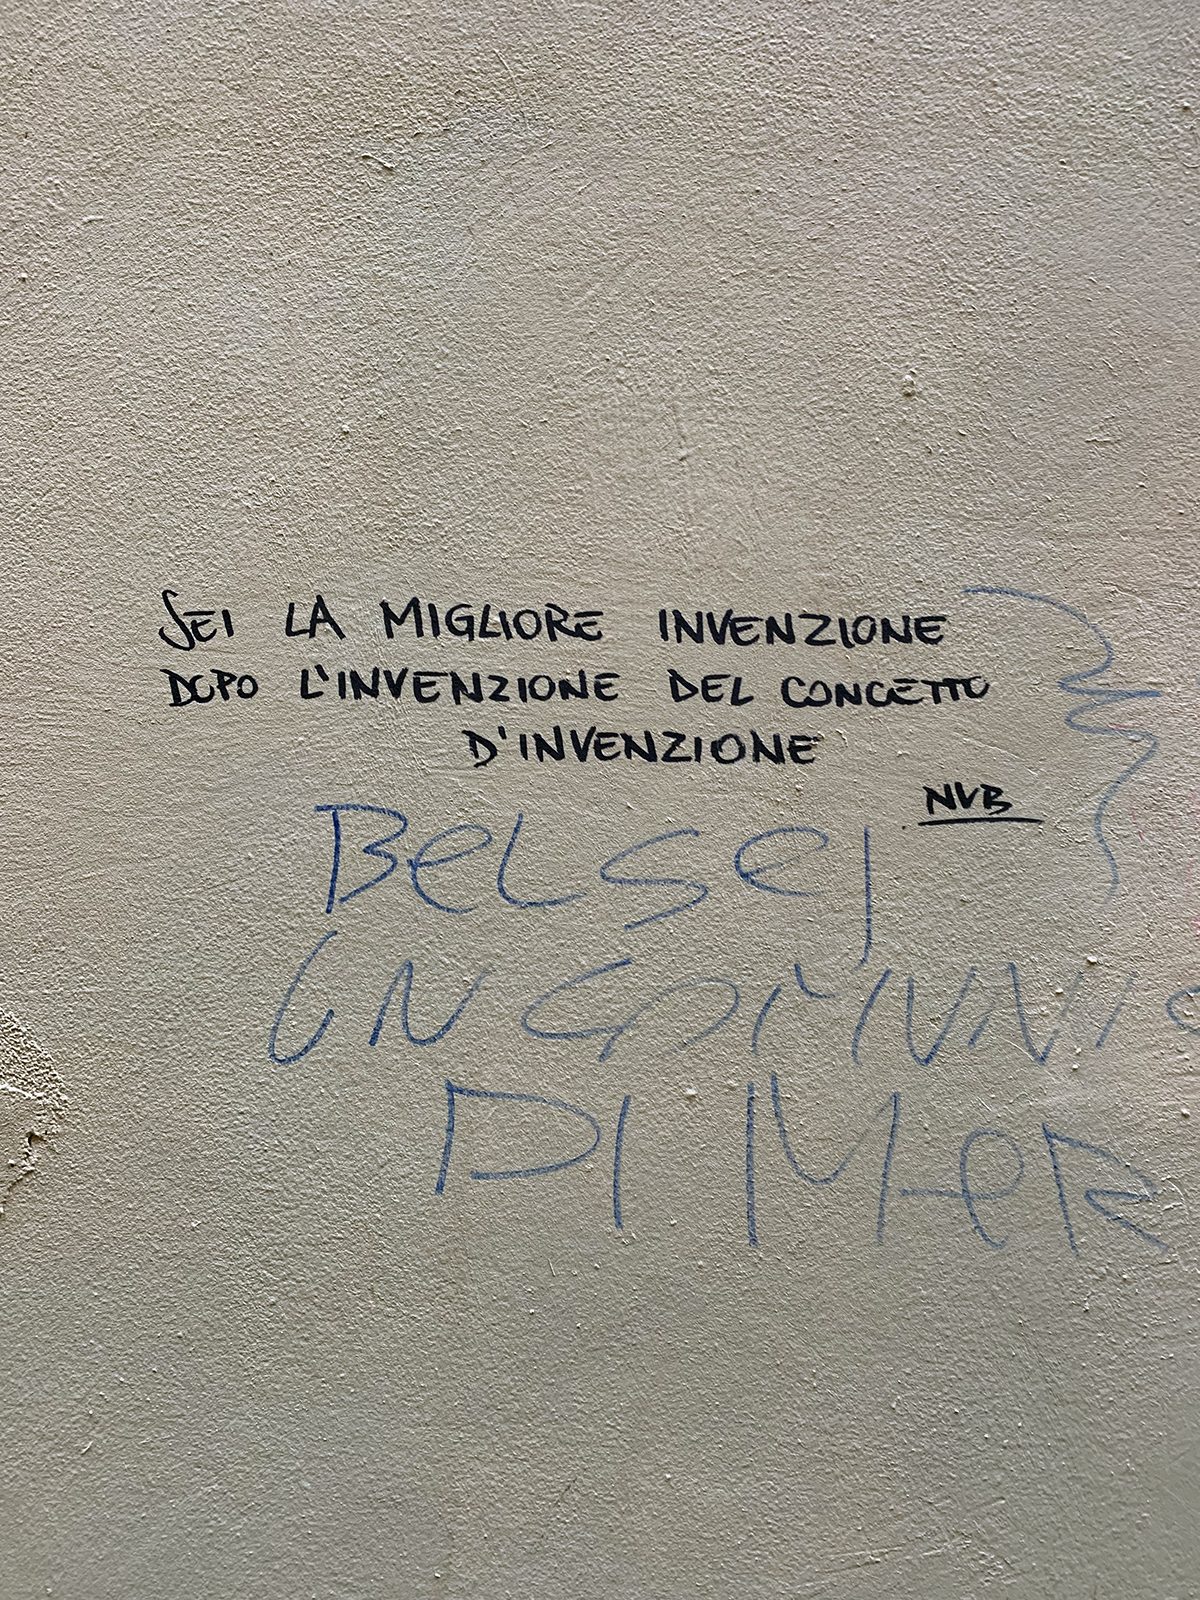 SEI LA MIGLIORE INVENZIONE
DOPO L'INVENZIONE DEL CONCETTO
D'INVENZIONE
NVB
BeL sei
UN
DI MeR